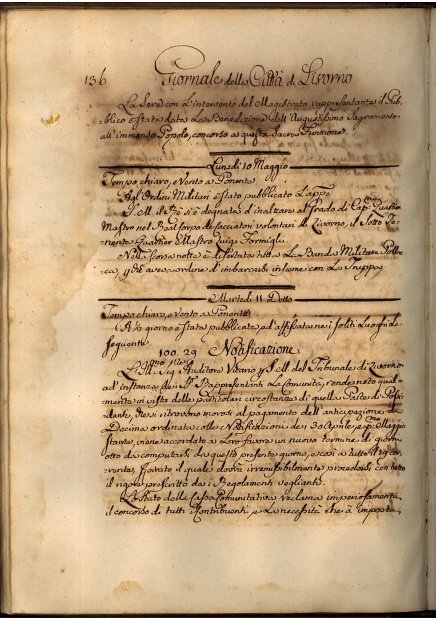 136 Giornale della Città di Livorno
La Sera con L'intervento del Magistrato rappresentante il Pub-
blico è stata data La Benedizione dell'Augustissimo Sagramento
all'immenso Popolo, concorso a questa Sacra Funzione.
Lunedì 10 Maggio
Tempo chiaro, e Vento a Ponente
Agl'Ordini Militari è stato pubblicato L'app.
S. M. il Rè si è degnata d'inalzare al Grado di Cap. Quartier
Mastro nel Real Corpo de Cacciatori volontari di Livorno, il Sotto Te-
nente Quartier Mastro Luigi Formigli
Nella scorsa notte è disertata tutta La Banda Militare
che aveva ordine d'imbarcarsi insieme con La Truppa
Martedì 11 Detto
Tempo chiaro, e Vento a Ponente
giorno è stata pubblicata ed affissa nei soliti Luoghi la
seguente
100. 29 Notificazione
L'Ill. Sig. Auditore Vicario di S. M. del Tribunale di Livorno
ad'instanza de Rappresentanti La Comunità, rende noto qual-
mente in vista delle particolari circostanze di quelle Tassa di
che si ritrovono morosi al pagamento dell'anticipazione di
Decima ordinata colle Notificazioni de 30 Aprile e p. Maggio
stante, viene accordato a Loro favore un nuovo termine di giorni
otto da computarsi da questo presente giorno, e così a tutto il 19 cor-
rente, spirato il quale dovrà irremissibilmente procedersi con tutto
il rigore prescritto da i Regolamenti veglianti.
Lo Stato della Cassa Comunitativa reclama imperiosamente
il concorso di tutti i Contribuenti, e La necessità che à imposta,